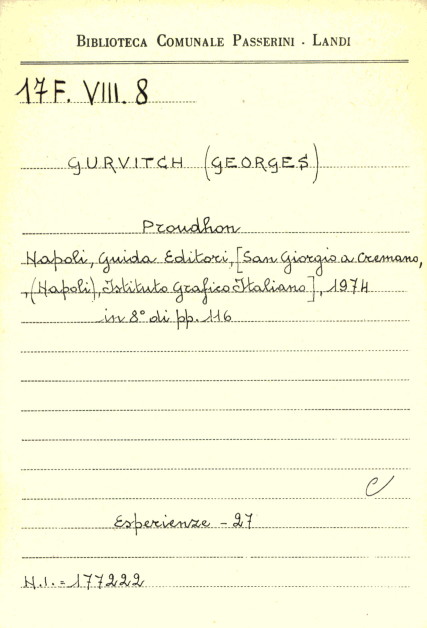 BIBLIOTECA COMUNALE PASSERINI - LANDI
17 F. VIII. 8
GURVITCH (GEORGES)
Proudhon
Napoli, Guida Editori, [San Giorgio a Cremano,
,(Napoli), Istituto Grafico Italiano], 1974
in 8° di pp. 116
C
Esperienze - 27
N.I. = 177222